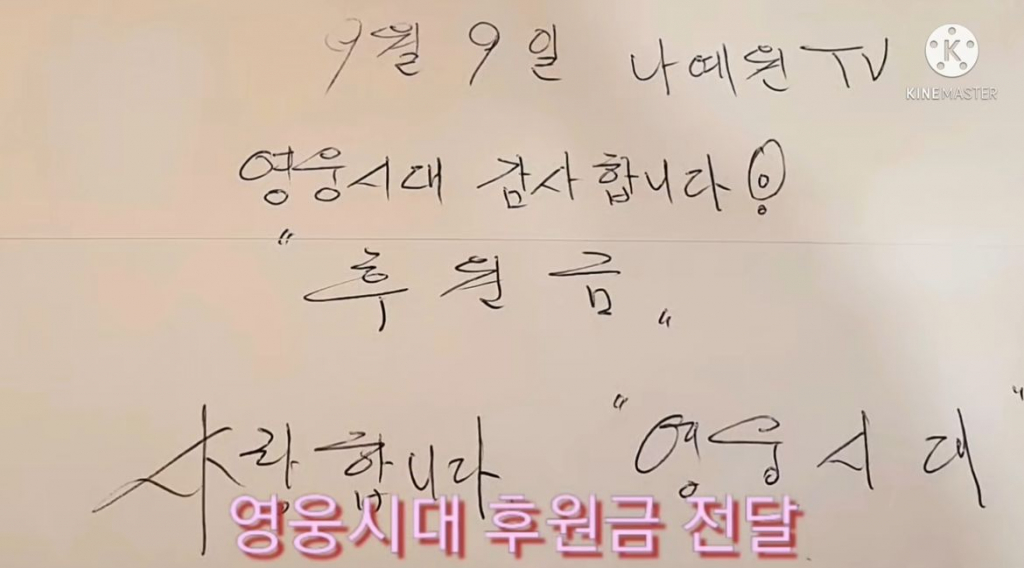 9월 9일 나예원 TV
KINEMASTER
영웅시대 감사합니다!
"후원금"
사랑합니다 "영웅시대"
영웅시대 후원금 전달